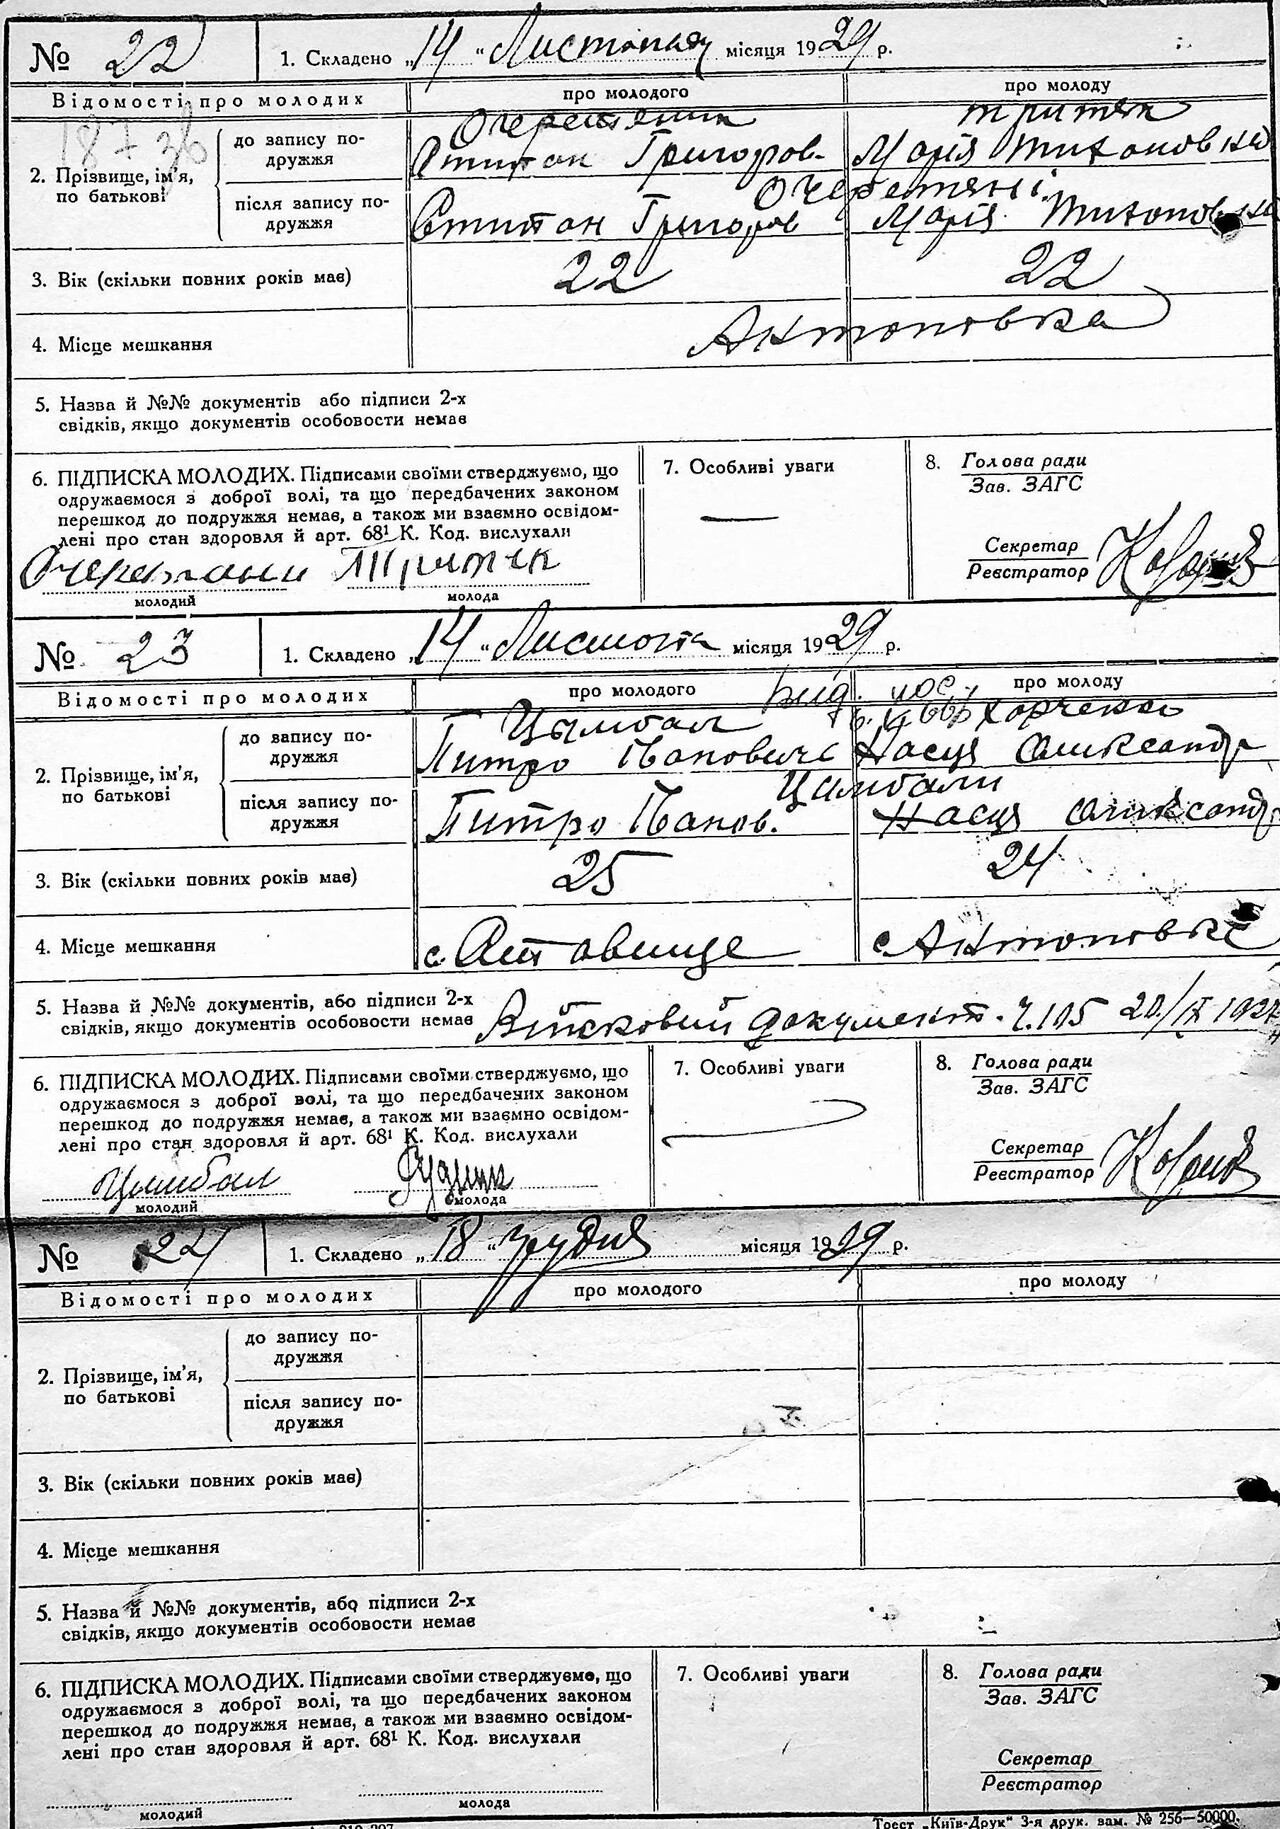 № 22 1. Складено „14“ Листопада місяця 1929 р.
Відомості про молодих про молодого про молоду
1873б
Очеретяний Притяк
до запису по-
дружжя
Степан Григоров. Марія Тихоновна
2. Прізвище, ім'я,
по батькові
Очеретяні
після запису по-
дружжя
Степан Григоров Марія Тихоновна
3. Вік (скільки повних років має) 22 22
4. Місце мешкання Антоновка
5. Назва й №№ документів або підписи 2-х
свідків, якщо документів особовости немає
6. ПІДПИСКА МОЛОДИХ. Підписами своїми стверджуємо, що
одружаємося з доброї волі, та що передбачених законом
перешкод до подружжя немає, а також ми взаємно освідом-
лені про стан здоровля й арт. 68¹ К. Код. вислухали
молодий молода
7. Особливі уваги
—
8. Голова ради
Зав. ЗАГС
Секретар
Реєстратор
№ 23 1. Складено „14“ Листопа місяця 1929 р.
Відомості про молодих про молодого про молоду
Цымбал Харченко
до запису по-
дружжя
Питро Іванович Настя Олександр
2. Прізвище, ім'я,
по батькові
Цимбали
після запису по-
дружжя
Питро Іванов. Настя Олександ
3. Вік (скільки повних років має) 25 24
4. Місце мешкання с. Ставище с Антоновка
5. Назва й №№ документів, або підписи 2-х
свідків, якщо документів особовости немає
Війсковий документ. ч. 105 20/IX 1927
6. ПІДПИСКА МОЛОДИХ. Підписами своїми стверджуємо, що
одружаємося з доброї волі, та що передбачених законом
перешкод до подружжя немає, а також ми взаємно освідом-
лені про стан здоровля й арт. 68¹ К. Код. вислухали
Цимбал
молодий молода
7. Особливі уваги
8. Голова ради
Зав. ЗАГС
Секретар
Реєстратор
№ 24 1. Складено „18“ грудня місяця 1929 р.
Відомості про молодих про молодого про молоду
до запису по-
дружжя
2. Прізвище, ім'я,
по батькові
після запису по-
дружжя
3. Вік (скільки повних років має)
4. Місце мешкання
5. Назва й №№ документів, або підписи 2-х
свідків, якщо документів особовости немає
6. ПІДПИСКА МОЛОДИХ. Підписами своїми стверджуємо, що
одружаємося з доброї волі, та що передбачених законом
перешкод до подружжя немає, а також ми взаємно освідом-
лені про стан здоровля й арт. 68¹ К. Код. вислухали
молодий молода
7. Особливі уваги
8. Голова ради
Зав. ЗАГС
Секретар
Реєстратор
Трест „Київ-Друк“ 3-я друк. зам. № 256—50000.